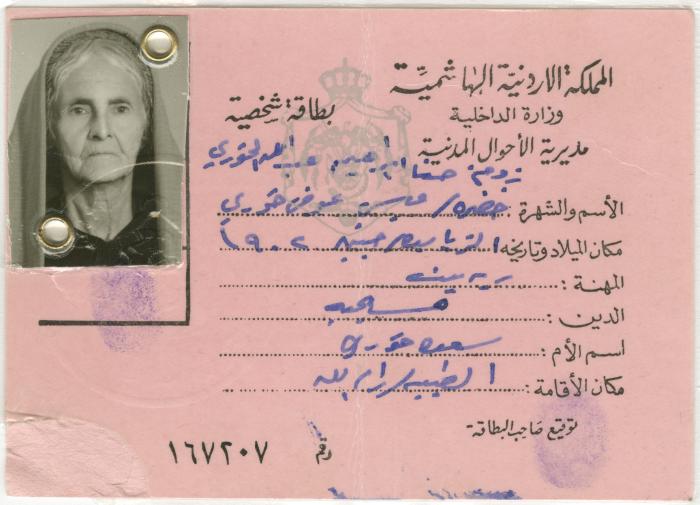 المملكة الاردنيّة الهاشميّة
وزارة الداخلية
بطاقة شخصية
مديرية الأحوال المدنية
زوجة حنا ابراهيم عبدالله الخوري
الأسم والشهرة خضره / عوض خوري
مكان الميلاد وتاريخه ١٩٠٢
المهنة : ربة بيت
الدين : مسيحيه
اسم الأم : سعده خوري
مكان الأقامة الطيبه / رام الله
توقيع صاحب البطاقة
رقم ١٦٧٢٠٧